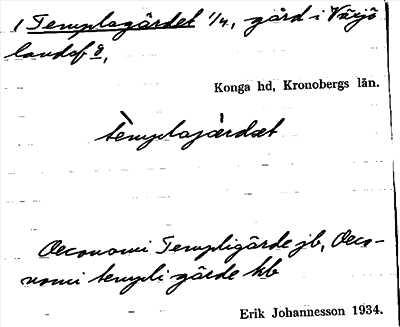 1 Templagärdet 1/4, gård i Växjö
landsf 9,
Konga hd, Kronobergs län.
tèmplagä̀rdət
Oeconomi Templigärde jb, Oeco-
nomi templi gärde kb
Erik Johannesson 1934.